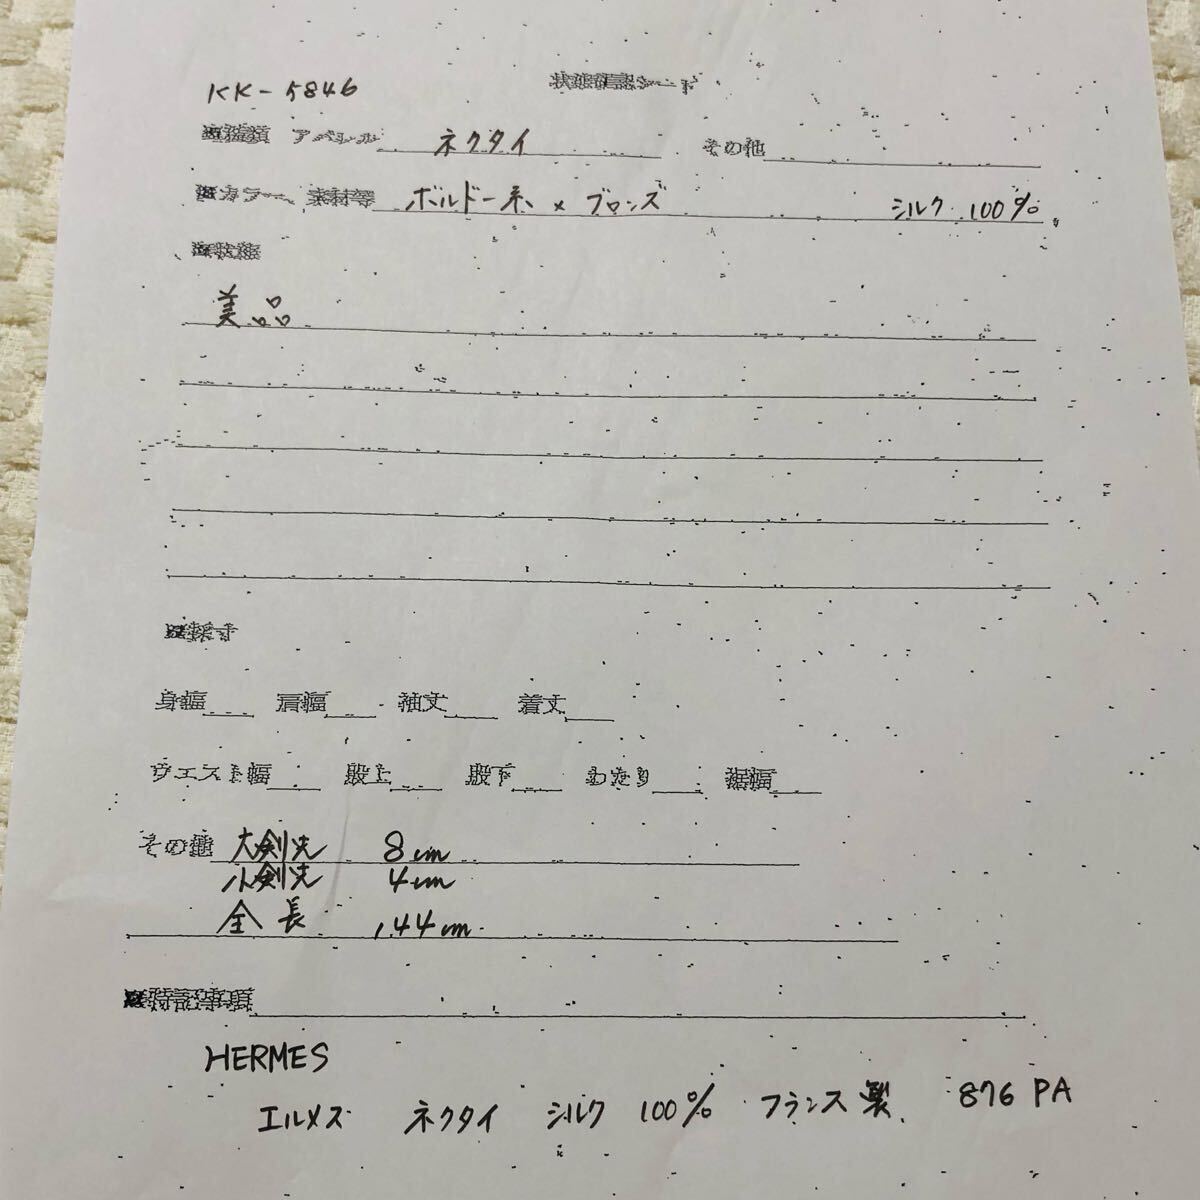 状態確認シート
KK-5846
※種類 アパレル ネクタイ その他
※カラー、素材等 ボルドー系 × ブロンズ シルク 100%
※状態
美品
※採寸
身幅 肩幅 袖丈 着丈
ウエスト幅 股上 股下 わたり 裾幅
その他 大剣先 8cm
小剣先 4cm
全長 144cm
※特記事項
HERMES
エルメス ネクタイ シルク 100% フランス製 876 PA